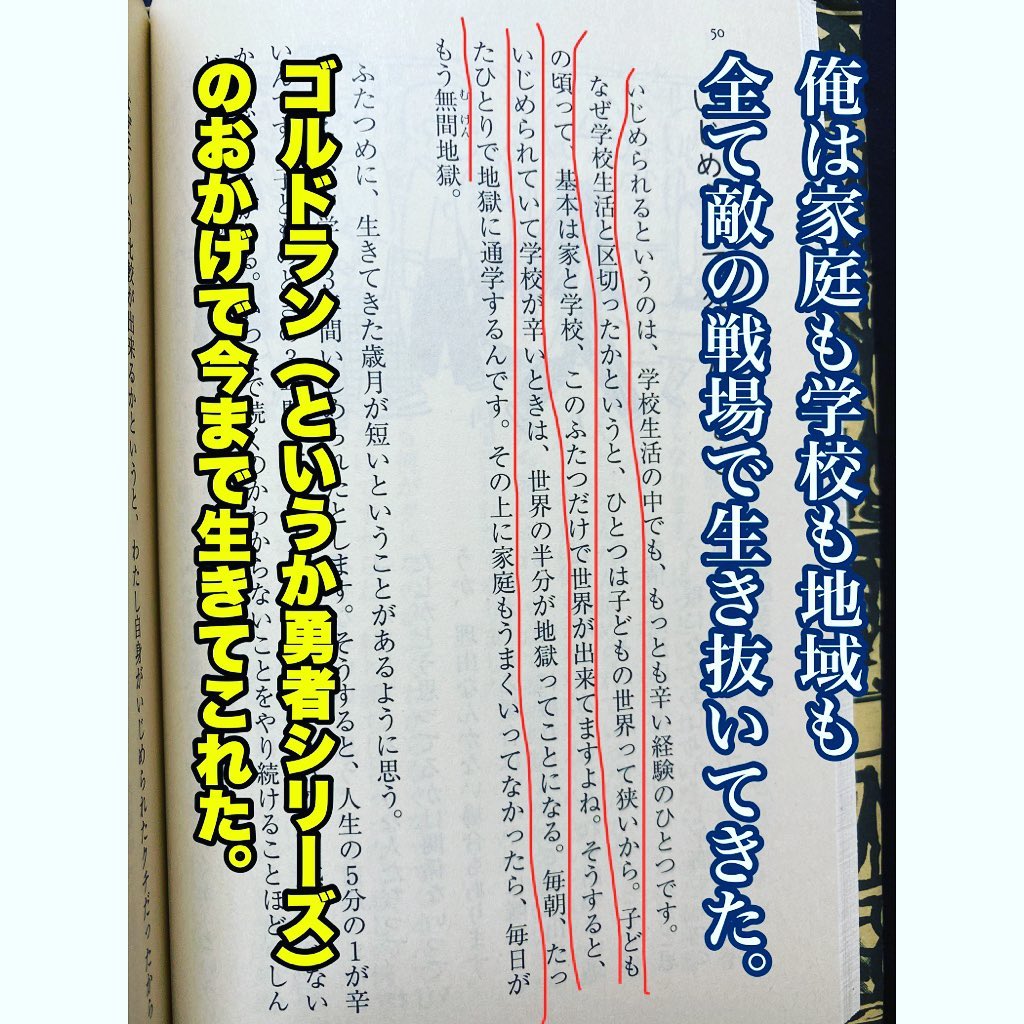 俺は家庭も学校も地域も
全て敵の戦場で生き抜いてきた。
50
いじめ
いじめられるというのは、学校生活の中でも、もっとも辛い経験のひとつです。
なぜ学校生活と区切ったかというと、ひとつは子どもの世界って狭いから。子ども
の頃って、基本は家と学校、このふたつだけで世界が出来てますよね。そうすると、
いじめられていて学校が辛いときは、世界の半分が地獄ってことになる。毎朝、たっ
たひとりで地獄に通学するんです。その上に家庭もうまくいってなかったら、毎日が
もう無間地獄。
ふたつめに、生きてきた歳月が短いということがあるように思う。
そうすると、人生の5分の1が辛
ゴルドラン（というか勇者シリーズ）
続くのかわからないことをやり続けることほどしん
のおかげで今まで生きてこれた。
出来るかというと、わたし自身がいじめられたクチだったから